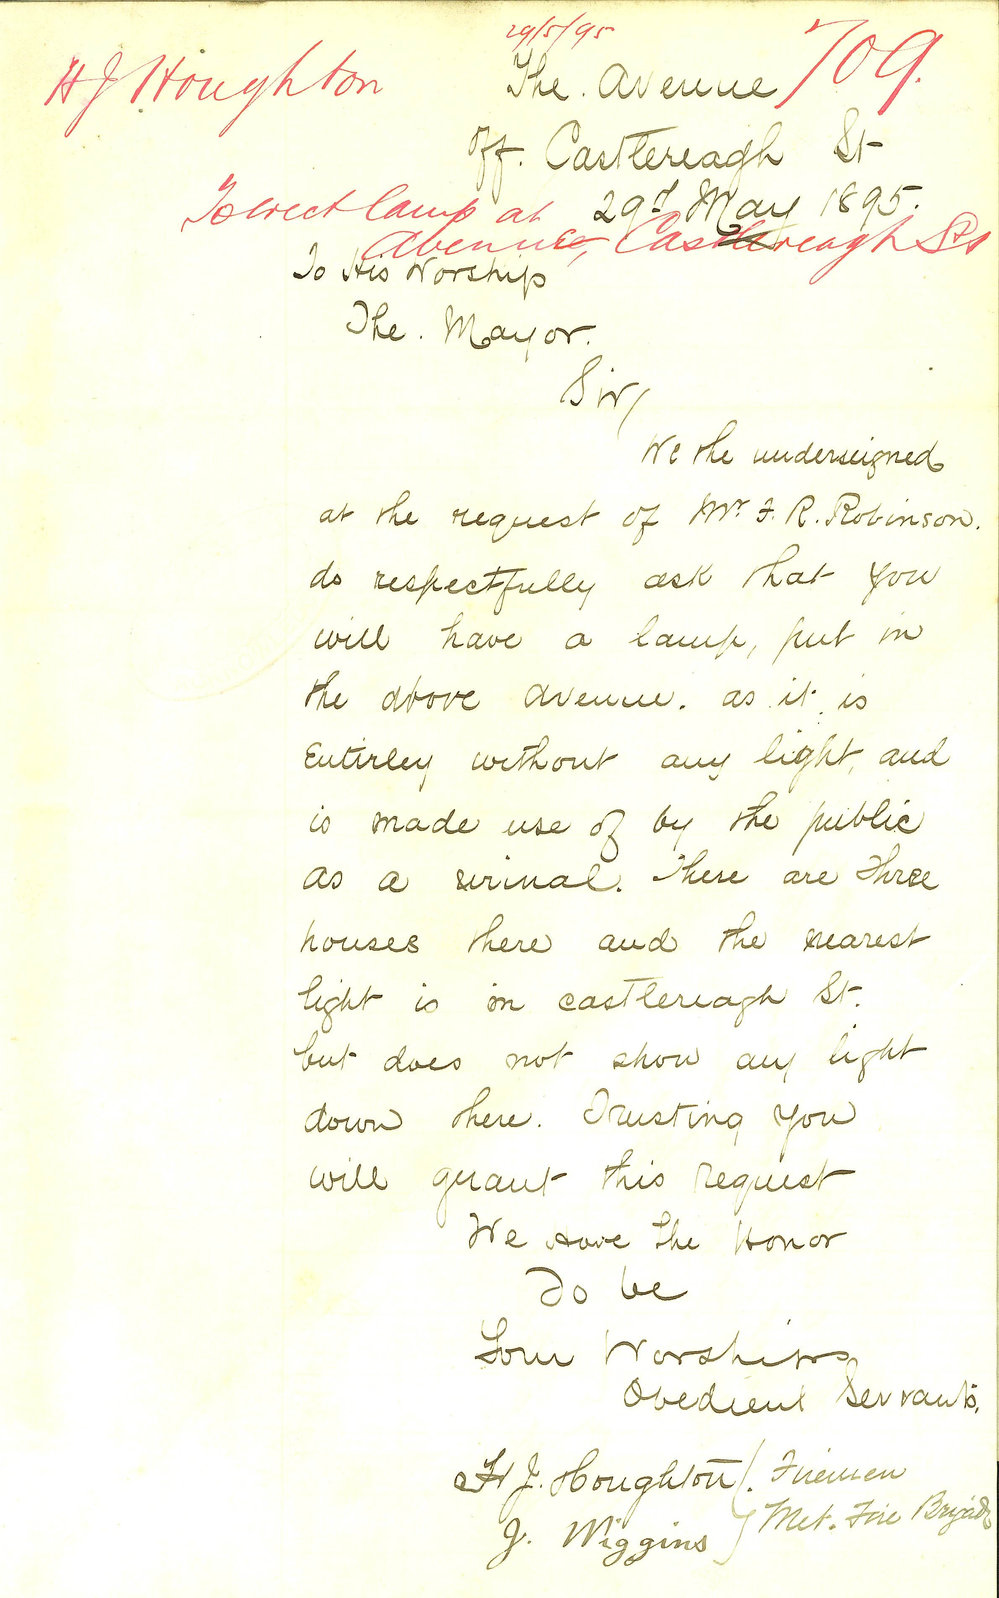 29/5/95
H J Houghton
709.
The. Avenue
Off. Castlereagh St
29th May 1895.
To erect lamp at
Avenue, Castlereagh St
To His Worship
The. Mayor.
Sir/
We the underseigned
at the request of Mr. F. R. Robinson.
do respectfully ask that you
will have a lamp, put in
the above avenue. as it is
Entirley without any light, and
is made use of by the public
as a urinal. There are three
houses there and the nearest
light is in castlereagh St.
but does not show any light
down there. Trusting you
will grant this request
We Have The Honor
To be
Your Worships
Obedient Servants.
H J. Houghton } Firemen
J. Wiggins } Met. Fire Brigade